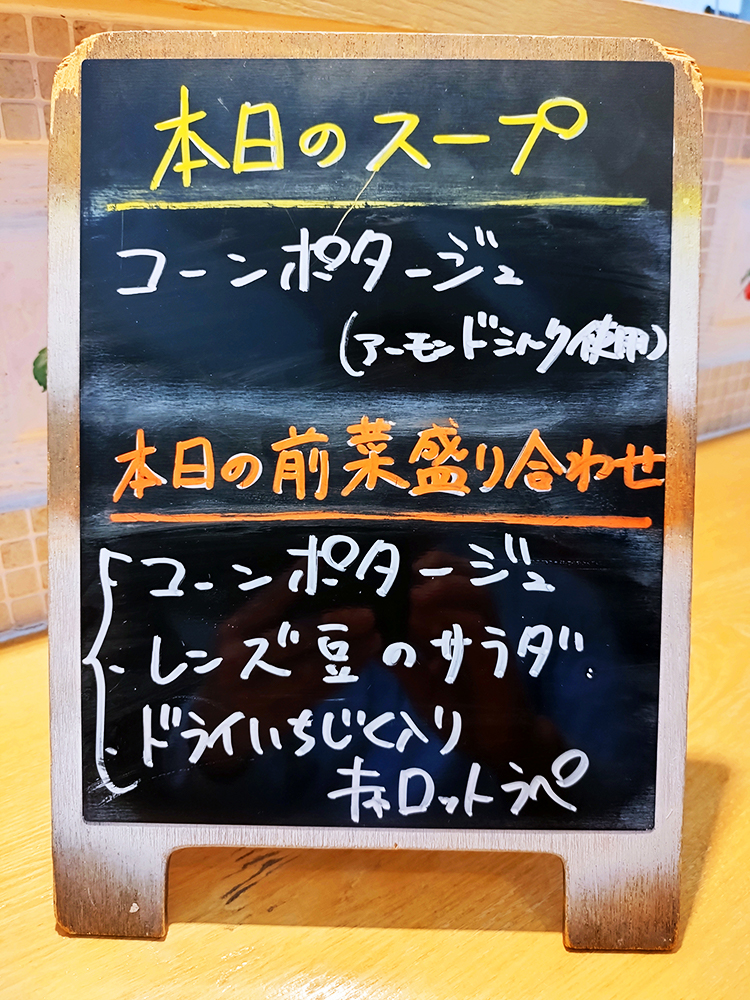 本日のスープ
コーンポタージュ
(アーモンドミルク使用)
本日の前菜盛り合わせ
・コーンポタージュ
・レンズ豆のサラダ
・ドライいちじく入り
キャロットラペ